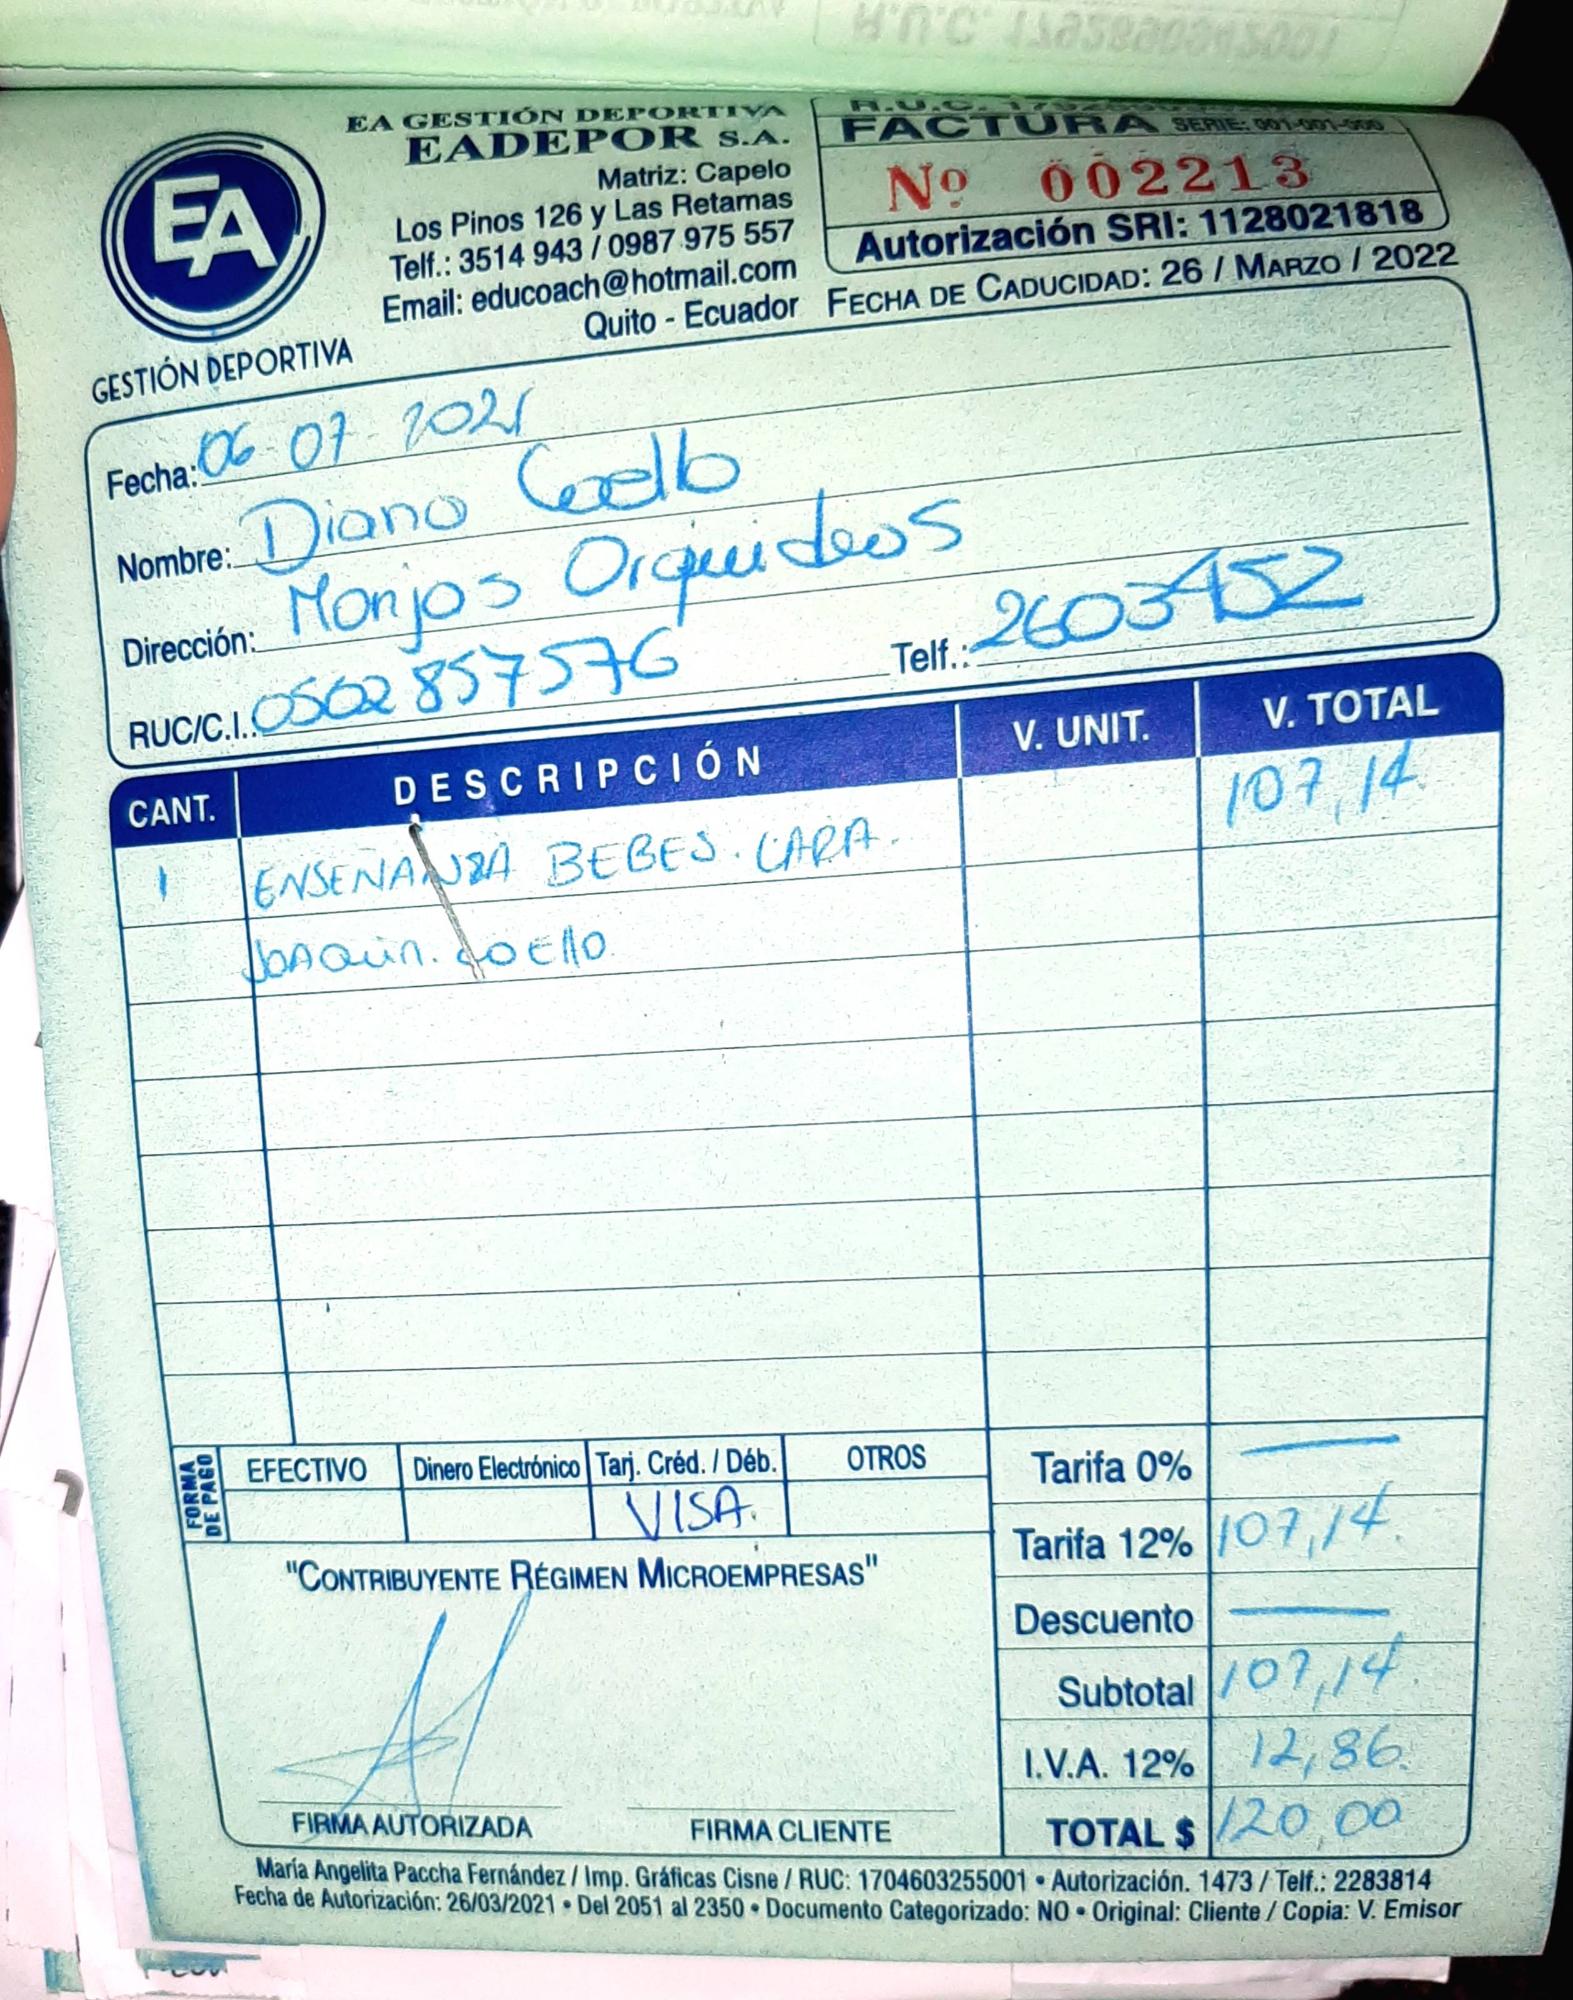 EA GESTIÓN DEPORTIVA
EADEPOR S.A.
Matriz: Capelo
Los Pinos 126 y Las Retamas
Telf.: 3514 943 / 0987 975 557
Email: educoach@hotmail.com
Quito - Ecuador
EA
GESTIÓN DEPORTIVA
R.U.C.
FACTURA SERIE: 001-001-000
Nº 002213
Autorización SRI: 1128021818
FECHA DE CADUCIDAD: 26 / MARZO / 2022
Fecha: 06 07 2021
Nombre: Diana Coello
Dirección: Monjas Orquideas
RUC/C.I.: 0502857576 Telf.: 2603452
CANT. DESCRIPCIÓN V. UNIT. V. TOTAL
1 ENSEÑANZA BEBES. CARA. 107,14
JOAQUIN. COELLO
FORMA DE PAGO
EFECTIVO Dinero Electrónico Tarj. Créd. / Déb. OTROS
VISA.
"CONTRIBUYENTE RÉGIMEN MICROEMPRESAS"
Tarifa 0% —
Tarifa 12% 107,14
Descuento —
Subtotal 107,14
I.V.A. 12% 12,86
TOTAL $ 120,00
FIRMA AUTORIZADA FIRMA CLIENTE
María Angelita Paccha Fernández / Imp. Gráficas Cisne / RUC: 1704603255001 • Autorización. 1473 / Telf.: 2283814
Fecha de Autorización: 26/03/2021 • Del 2051 al 2350 • Documento Categorizado: NO • Original: Cliente / Copia: V. Emisor